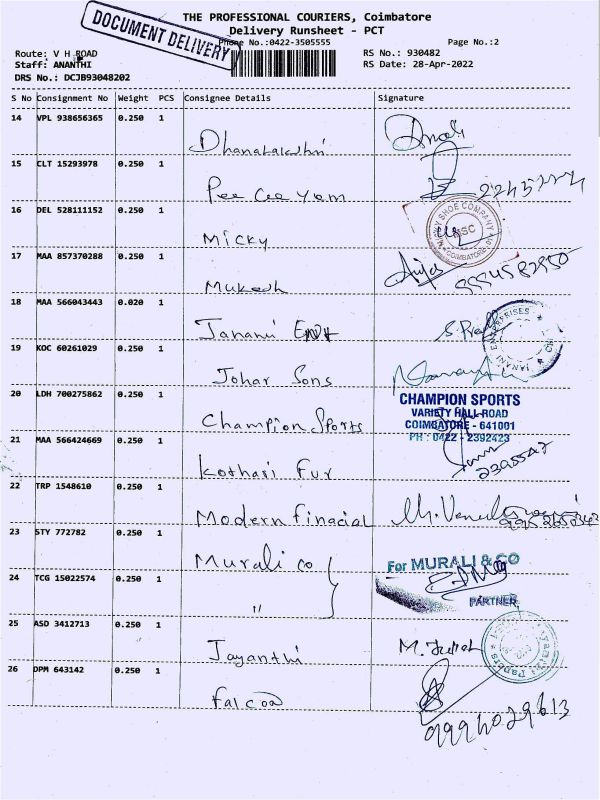 THE PROFESSIONAL COURIERS, Coimbatore
DOCUMENT DELIVERY
Delivery Runsheet - PCT
Phone No.:0422-3505555 Page No.:2
Route: V H ROAD RS No.: 930482
Staff: ANANTHI RS Date: 28-Apr-2022
DRS No.: DCJB93048202
S No Consignment No Weight PCS Consignee Details Signature
14 VPL 938656365 0.250 1
Dhanalakshmi
15 CLT 15293978 0.250 1
Pee Cee Yem
16 DEL 528111152 0.250 1
Micky
SHOE COMPANY
COIMBATORE
17 MAA 857370288 0.250 1
Mukesh
18 MAA 566043443 0.020 1
Janani Ent
JANANI ENTERPRISES
19 KOC 60261029 0.250 1
Johar Sons
20 LDH 700275862 0.250 1
Champion Sports
CHAMPION SPORTS
VARIETY HALL ROAD
COIMBATORE - 641001
PH : 0422 - 2392423
21 MAA 566424669 0.250 1
Kothari Fur
22 TRP 1548610 0.250 1
Modern Finacial
23 STY 772782 0.250 1
Murali co
For MURALI & CO
PARTNER
24 TCG 15022574 0.250 1
"
25 ASD 3412713 0.250 1
Jayanthi
26 DPM 643142 0.250 1
Falcon
9994029613